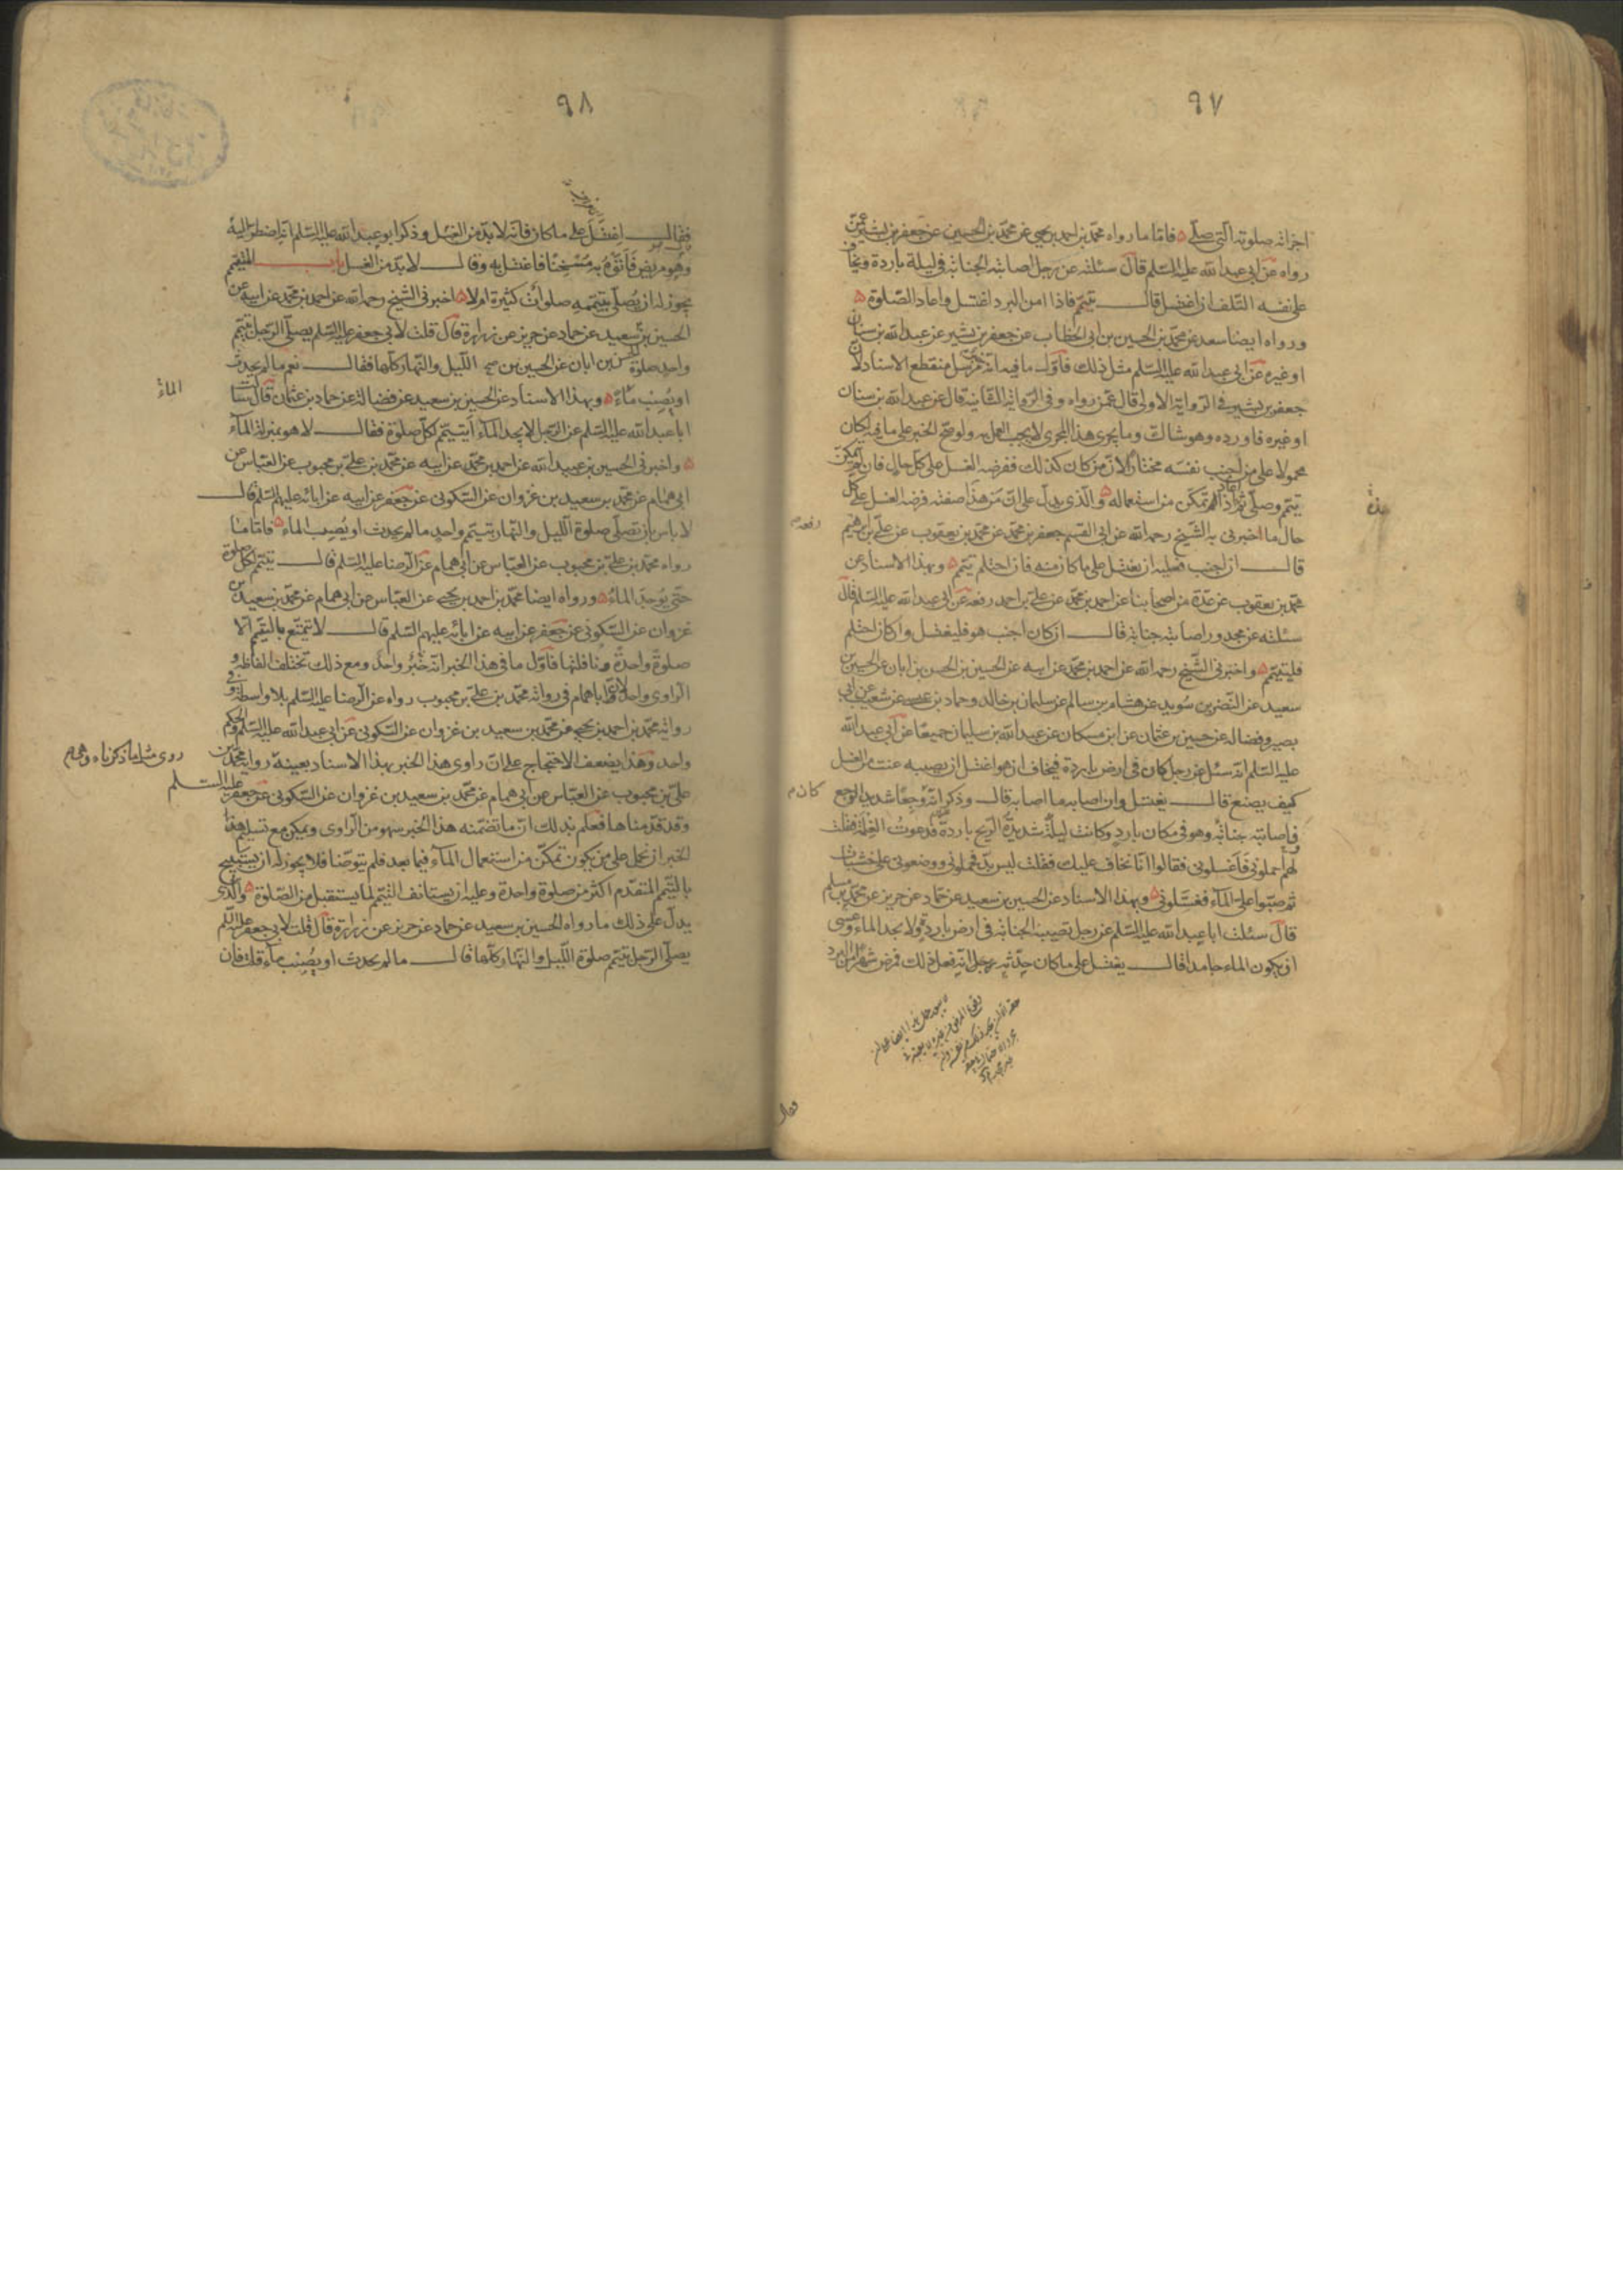 ٩٧
اجزأته صلوته التى صلى فاما ما رواه محمد بن احمد بن يحيى عن محمد بن الحسين عن جعفر بن بشير عمن
رواه عن ابى عبد الله عليه السلم قال سئلته عن رجل اصابته الجنابة فى ليلة باردة ويخاف
على نفسه التلف ان اغتسل قال يتيمم فاذا امن البرد اغتسل واعاد الصلوة
ورواه ايضا سعد عن محمد بن الحسين بن ابى الخطاب عن جعفر بن بشير عن عبد الله بن سنان
او غيره عن ابى عبد الله عليه السلم مثل ذلك فاول ما فيه انه خبر مرسل منقطع الاسناد لان
جعفر بن بشير فى الرواية الاولى قال عمن رواه وفى الرواية الثانية قال عن عبد الله بن سنان
او غيره فاورده وهو شاك وما يجرى هذا المجرى لا يجب العمل به ولو صح الخبر على ما فيه لكان
محمولا على من اجنب نفسه مختارا لان من كان كذلك ففرضه الغسل على كل حال فان لم يتمكن
تيمم وصلى ثم اعاد اذا تمكن من استعماله والذى يدل على ان من هذا صفته فرضه الغسل على كل
حال ما اخبرنى به الشيخ رحمه الله عن ابى القسم جعفر بن محمد عن محمد بن يعقوب عن على بن ابرهيم
رفعه
قال ان اجنب فعليه ان يغتسل على ما كان منه فان احتلم تيمم وبهذا الاسناد عن
محمد بن يعقوب عن عدة من اصحابنا عن احمد بن محمد عن على بن احمد رفعه عن ابى عبد الله عليه السلم قال
سئلته عن مجدور اصابته جنابة قال ان كان اجنب هو فليغتسل وان كان احتلم
فليتيمم واخبرنى الشيخ رحمه الله عن احمد بن محمد عن ابيه عن الحسين بن الحسن بن ابان عن الحسين بن
سعيد عن النضر بن سويد عن هشام بن سالم عن سليمان بن خالد وحماد بن عيسى عن شعيب عن ابى
بصير وفضالة عن حسين بن عثمان عن ابن مسكان عن عبد الله بن سليمان جميعا عن ابى عبد الله
عليه السلم انه سئل عن رجل كان فى ارض باردة فيخاف ان هو اغتسل ان يصيبه عنت من الغسل
كيف يصنع قال يغتسل وان اصابه ما اصابه قال وذكر انه وجعا شديد الوجع
كان
فاصابته جنابة وهو فى مكان بارد وكانت ليلة شديدة الريح باردة فدعوت الغلمة فقلت
لهم احملونى فاغسلونى فقالوا انا نخاف عليك فقلت ليس بد فحملونى ووضعونى على خشبات
ثم صبوا على الماء فغسلونى وبهذا الاسناد عن الحسين بن سعيد عن حماد عن حريز عن محمد بن مسلم
قال سئلت ابا عبد الله عليه السلم عن رجل تصيبه الجنابة فى ارض باردة ولا يجد الماء وعسى
ان يكون الماء جامدا قال يغتسل على ما كان حدثه رجل انه فعل ذلك فمرض شهرا من البرد
فقال
٩٨
فقال اغتسل على ما كان فانه لا بد من الغسل وذكر ابو عبد الله عليه السلم انه اضطر اليه
وهو مريض فاتوه به مسخنا فاغتسل به وقال لا بد من الغسل باب المتيمم
يجوز له ان يصلى بتيممه صلوات كثيرة ام لا اخبرنى الشيخ رحمه الله عن احمد بن محمد عن ابيه عن
الحسين بن سعيد عن حماد عن حريز عن زرارة قال قلت لابى جعفر عليه السلم يصلى الرجل بتيمم
واحد صلوة الليل والنهار كلها فقال نعم ما لم يحدث
او يصيب ماء وبهذا الاسناد عن الحسين بن سعيد عن فضالة عن حماد بن عثمان قال سئلت
الماء
ابا عبد الله عليه السلم عن الرجل لا يجد الماء ايتيمم لكل صلوة فقال لا هو بمنزلة الماء
واخبرنى الحسين بن عبيد الله عن احمد بن محمد عن ابيه عن محمد بن على بن محبوب عن العباس عن
ابى همام عن محمد بن سعيد بن غزوان عن السكونى عن جعفر عن ابيه عن ابائه عليهم السلم قال
لا باس بان تصلى صلوة الليل والنهار بتيمم واحد ما لم يحدث او يصيب الماء فاما ما
رواه محمد بن على بن محبوب عن العباس عن ابى همام عن الرضا عليه السلم قال يتيمم لكل صلوة
حتى يوجد الماء ورواه ايضا محمد بن احمد بن يحيى عن العباس عن ابى همام عن محمد بن سعيد بن
غزوان عن السكونى عن جعفر عن ابيه عن ابائه عليهم السلم قال لا يتمتع بالتيمم الا
صلوة واحدة ونافلتها فاول ما فى هذا الخبر انه خبر واحد ومع ذلك تختلف الفاظه و
الراوى واحد لان ابا همام فى رواية محمد بن على بن محبوب رواه عن الرضا عليه السلم بلا واسطة وفى
رواية محمد بن احمد بن يحيى عن محمد بن سعيد بن غزوان عن السكونى عن ابى عبد الله عليه السلم والحكم
واحد وهذا يضعف الاحتجاج على ان راوى هذا الخبر بهذا الاسناد بعينه
روى مثل ما ذكرناه
رواية محمد بن
على بن محبوب عن العباس عن ابى همام عن محمد بن سعيد بن غزوان عن السكونى عن جعفر عليه السلم
وقد قدمناها فعلم بذلك ان ما تضمنه هذا الخبر سهو من الراوى ويمكن مع تسليم هذا
الخبر ان نحمل على من يكون تمكن من استعمال الماء فيما بعد فلم يتوضا فلا يجوز له ان يستبيح
بالتيمم المتقدم اكثر من صلوة واحدة وعليه ان يستانف التيمم لما يستقبل من الصلوة والذى
يدل على ذلك ما رواه الحسين بن سعيد عن حماد عن حريز عن زرارة قال قلت لابى جعفر عليه السلم
يصلى الرجل بتيمم صلوة الليل والنهار كلها قال ما لم يحدث او يصيب ماء قلت فان